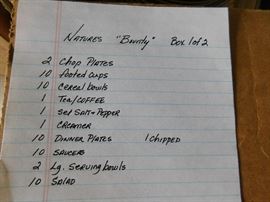 Natures "Bounty" Box 1 of 2
2 Chop Plates
10 footed cups
10 cereal bowls
1 Tea/Coffee
1 Set Salt & Pepper
1 Creamer
10 Dinner Plates 1 chipped
10 saucers
2 Lg. Serving bowls
10 Salad